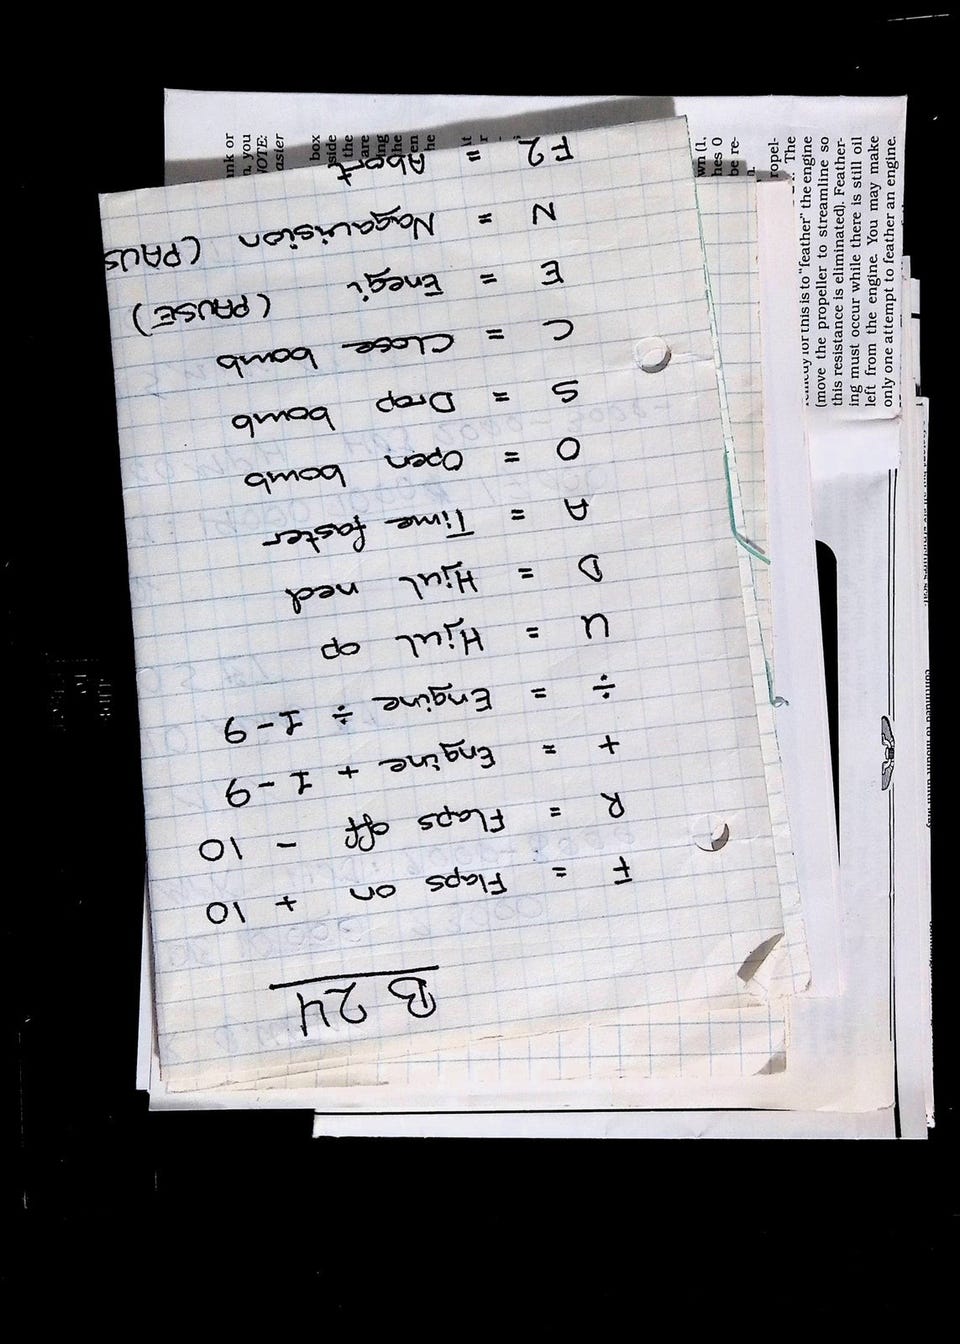 B24
F = Flaps on + 10
R = Flaps off - 10
+ = Engine + 1-9
÷ = Engine ÷ 1-9
U = Hjul op
D = Hjul ned
A = Time faster
O = Open bomb
S = Drop bomb
C = Close bomb
E = Enegi (PAUSE)
N = Nagavision (PAUS
F2 = Abort
nk or
, you
NOTE:
aster
box
side
the
are
ing
the
en
he
wn (1,
hes 0
be re-
n.
ropel-
The
remedy for this is to "feather" the engine
(move the propeller to streamline so
this resistance is eliminated). Feather-
ing must occur while there is still oil
left from the engine. You may make
only one attempt to feather an engine.